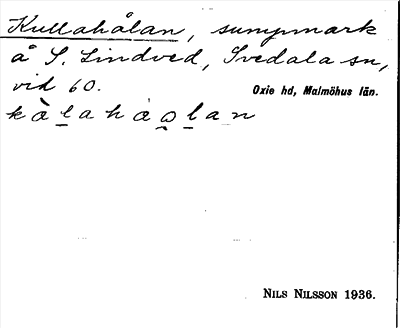 Kullahålan, sumpmark
å S. Lindved, Svedala sn,
vid 60.
Oxie hd, Malmöhus län.
NILS NILSSON 1936.